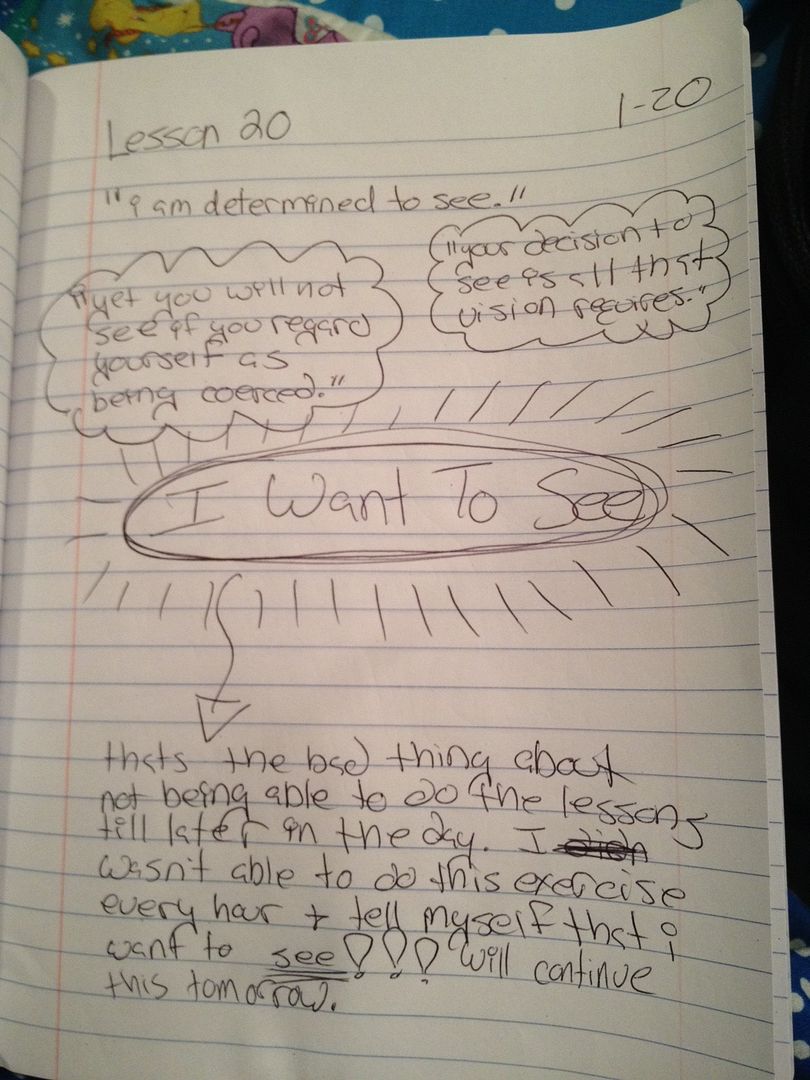 Lesson 20
1-20
"i am determined to see."
"yet you will not
see if you regard
yourself as
being coerced."
"your decision to
see is all that
vision requires."
I Want To See
thats the bad thing about
not being able to do the lessons
till later in the day. I didn
wasn't able to do this exercise
every hour + tell myself that i
want to see!!! Will continue
this tomorrow.